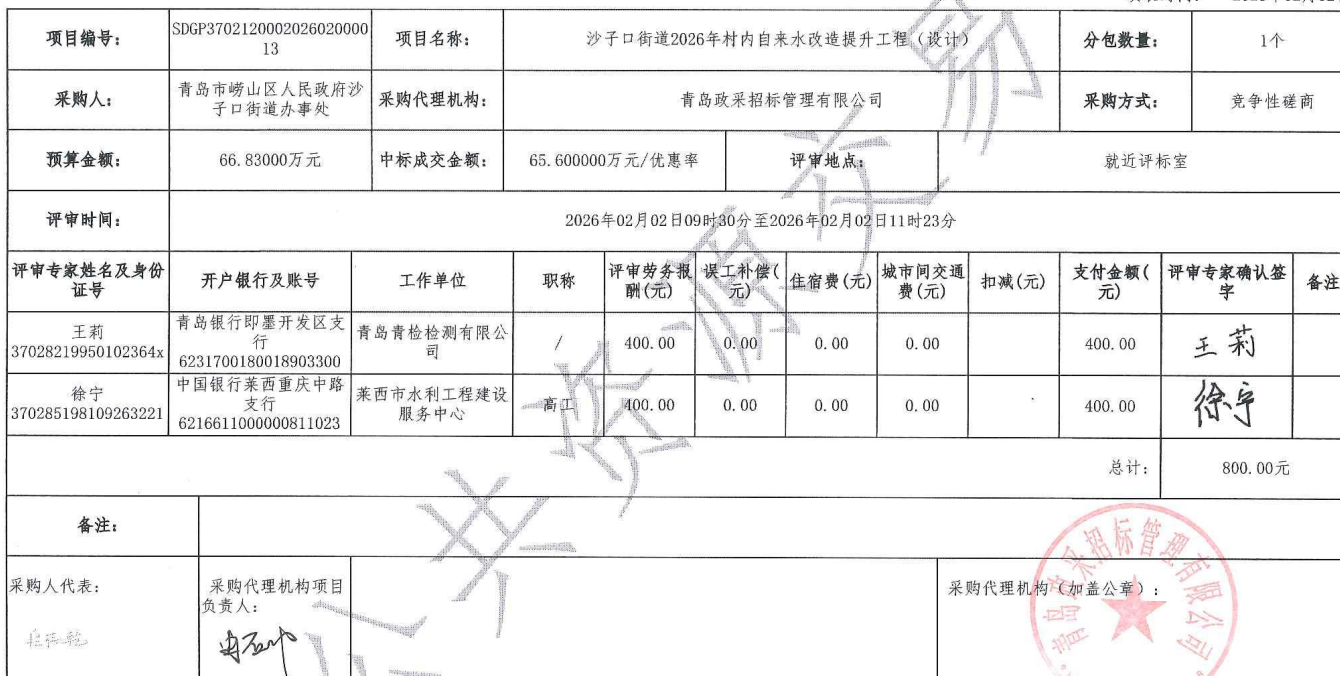 项目编号:
SDGP3702120002026020000
13
项目名称:
沙子口街道2026年村内自来水改造提升工程（设计）
分包数量:
1个
采购人:
青岛市崂山区人民政府沙
子口街道办事处
采购代理机构:
青岛政采招标管理有限公司
采购方式:
竞争性磋商
预算金额:
66.83000万元
中标成交金额:
65.600000万元/优惠率
评审地点:
就近评标室
评审时间:
2026年02月02日09时30分至2026年02月02日11时23分
评审专家姓名及身份
证号
开户银行及账号
工作单位
职称
评审劳务报
酬(元)
误工补偿(
元)
住宿费(元)
城市间交通
费(元)
扣减(元)
支付金额(
元)
评审专家确认签
字
备注
王莉
37028219950102364x
青岛银行即墨开发区支
行
6231700180018903300
青岛青检检测有限公
司
/
400.00
0.00
0.00
0.00
400.00
王莉
徐宁
370285198109263221
中国银行莱西重庆中路
支行
6216611000000811023
莱西市水利工程建设
服务中心
高工
400.00
0.00
0.00
0.00
400.00
徐宁
总计:
800.00元
备注:
采购人代表:
采购代理机构项目
负责人:
采购代理机构（加盖公章）:
青岛政采招标管理有限公司
公共资源交易